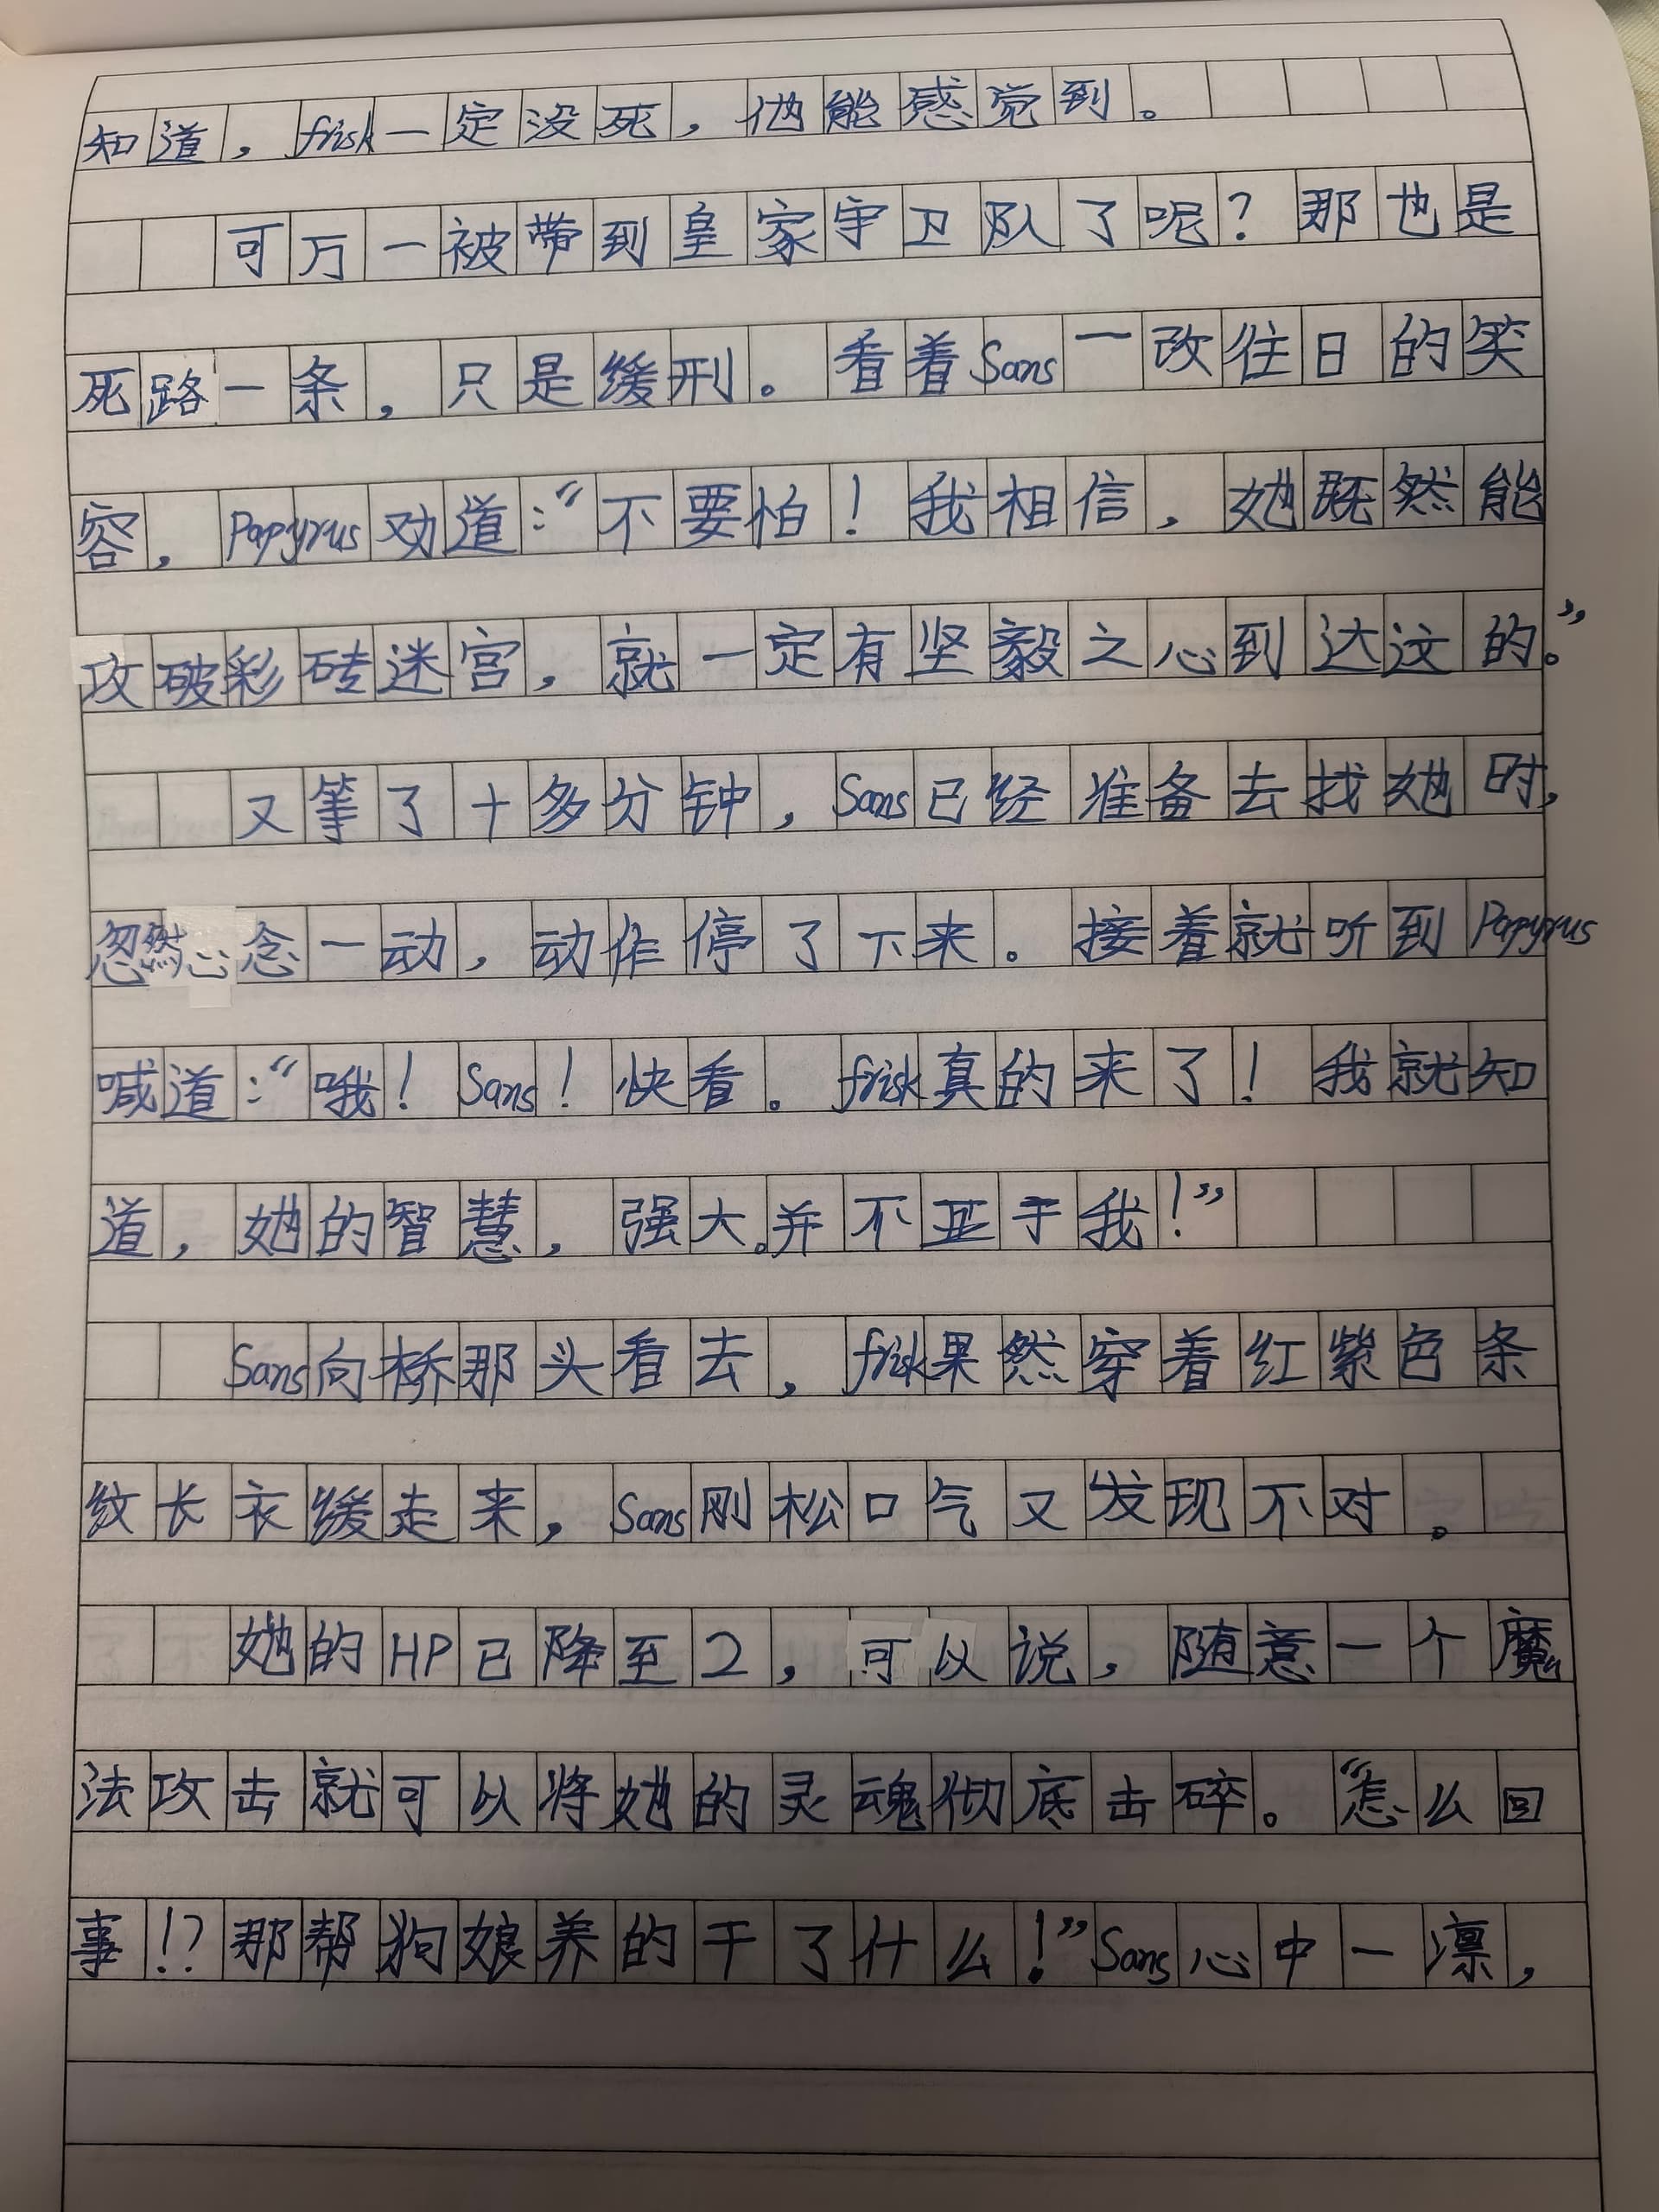 知道，frisk一定没死，他能感觉到。
可万一被带到皇家守卫队了呢？那也是
死路一条，只是缓刑。看着Sans一改往日的笑
容，Papyrus劝道：“不要怕！我相信，她既然能
攻破彩砖迷宫，就一定有坚毅之心到达这的。”
又等了十多分钟，Sans已经准备去找她时，
忽然心念一动，动作停了下来。接着就听到Papyrus
喊道：“哦！Sans！快看。frisk真的来了！我就知
道，她的智慧，强大。并不亚于我！”
Sans向桥那头看去，frisk果然穿着红紫色条
纹长衣缓走来，Sans刚松口气又发现不对。
她的HP已降至2，可以说，随意一个魔
法攻击就可以将她的灵魂彻底击碎。“怎么回
事！？那帮狗娘养的干了什么！”Sans心中一凛，